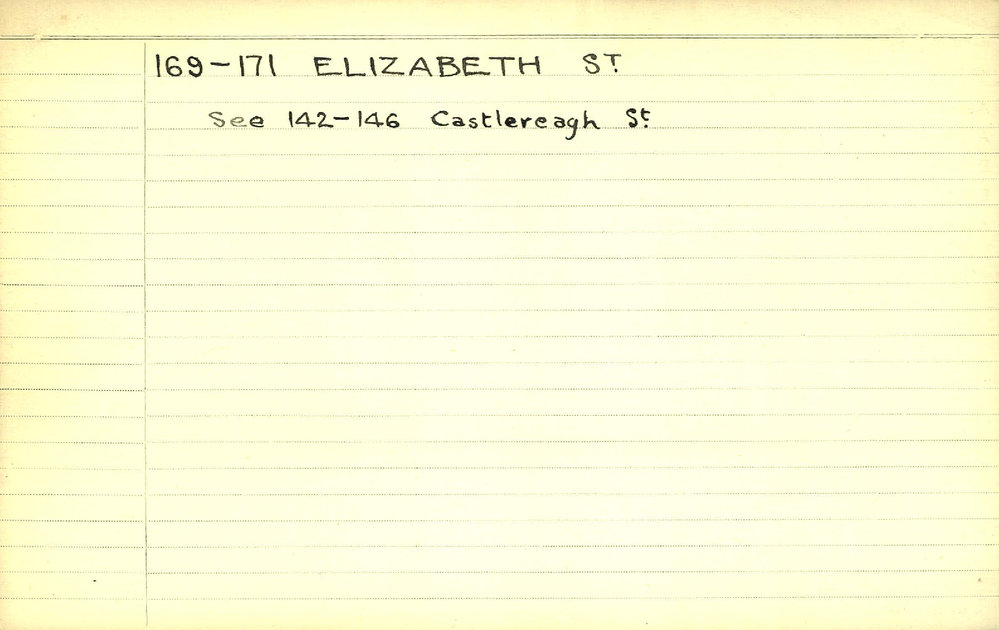 169-171 ELIZABETH ST.
See 142-146 Castlereagh St.